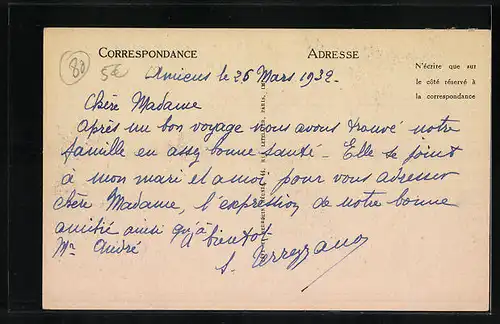 CORRESPONDANCE
ADRESSE
80
5€
N'écrire que sur
le côté réservé à
la correspondance
Amiens le 26 Mars 1932
Chère Madame
Après un bon voyage nous avons trouvé notre
famille en assez bonne santé - Elle se joint
à mon mari et à moi pour vous adresser
chère Madame, l'expression de notre bonne
amitié ainsi qu'à
Mr André
A bientôt
S.